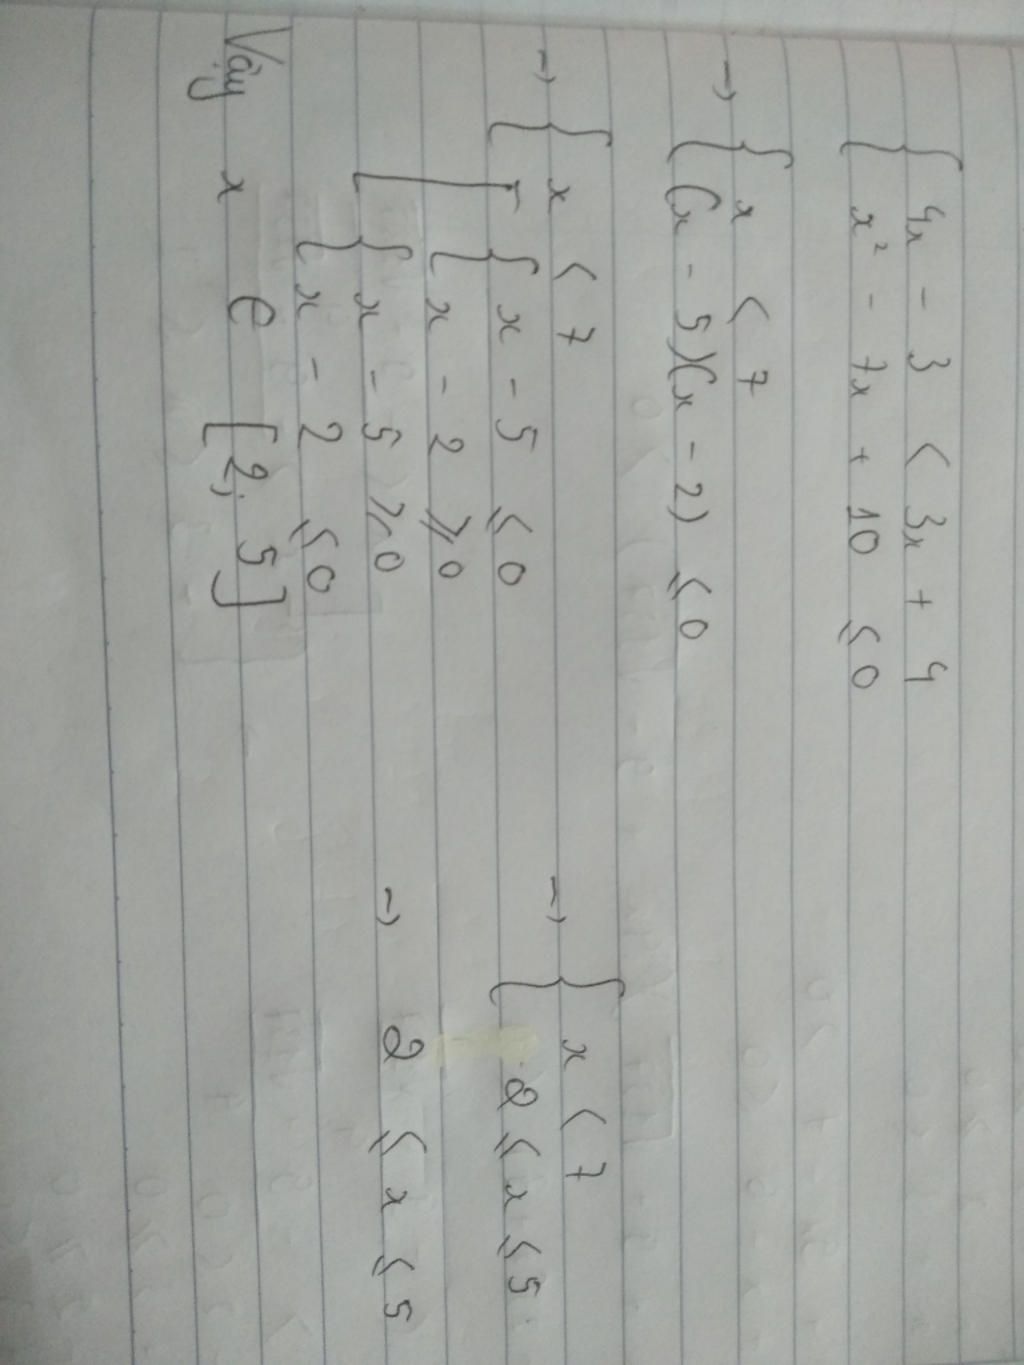 { 4x - 3 < 3x + 4
{ x² - 7x + 10 ≤ 0
→ { x < 7
{ (x - 5)(x - 2) ≤ 0
→ { x < 7
{ [ { x - 5 ≤ 0
{ x - 2 ≥ 0
{ x - 5 ≥ 0
{ x - 2 ≤ 0
→ { x < 7
{ 2 ≤ x ≤ 5
→ 2 ≤ x ≤ 5
Vậy x ∈ [2; 5]